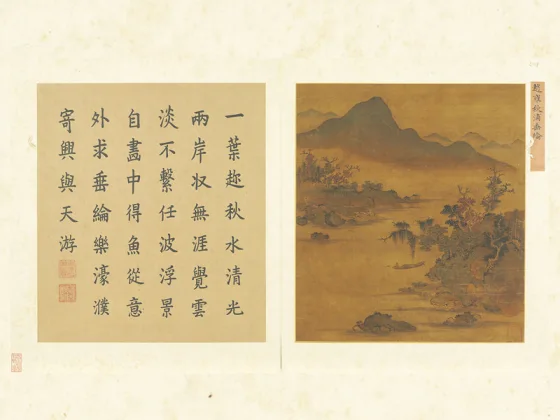 一葉趂秋水清光
兩岸収無涯覺雲
淡不繫任波浮景
自畫中得魚從意
外求垂綸樂濠濮
寄興與天游